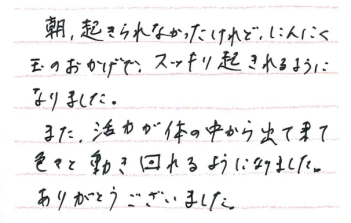 朝、起きられなかったけれど、にんにく
玉のおかげで、スッキリ起きれるように
なりました。
また、活力が体の中から出て来て
色々と動き回れるようになりました。
ありがとうございました。